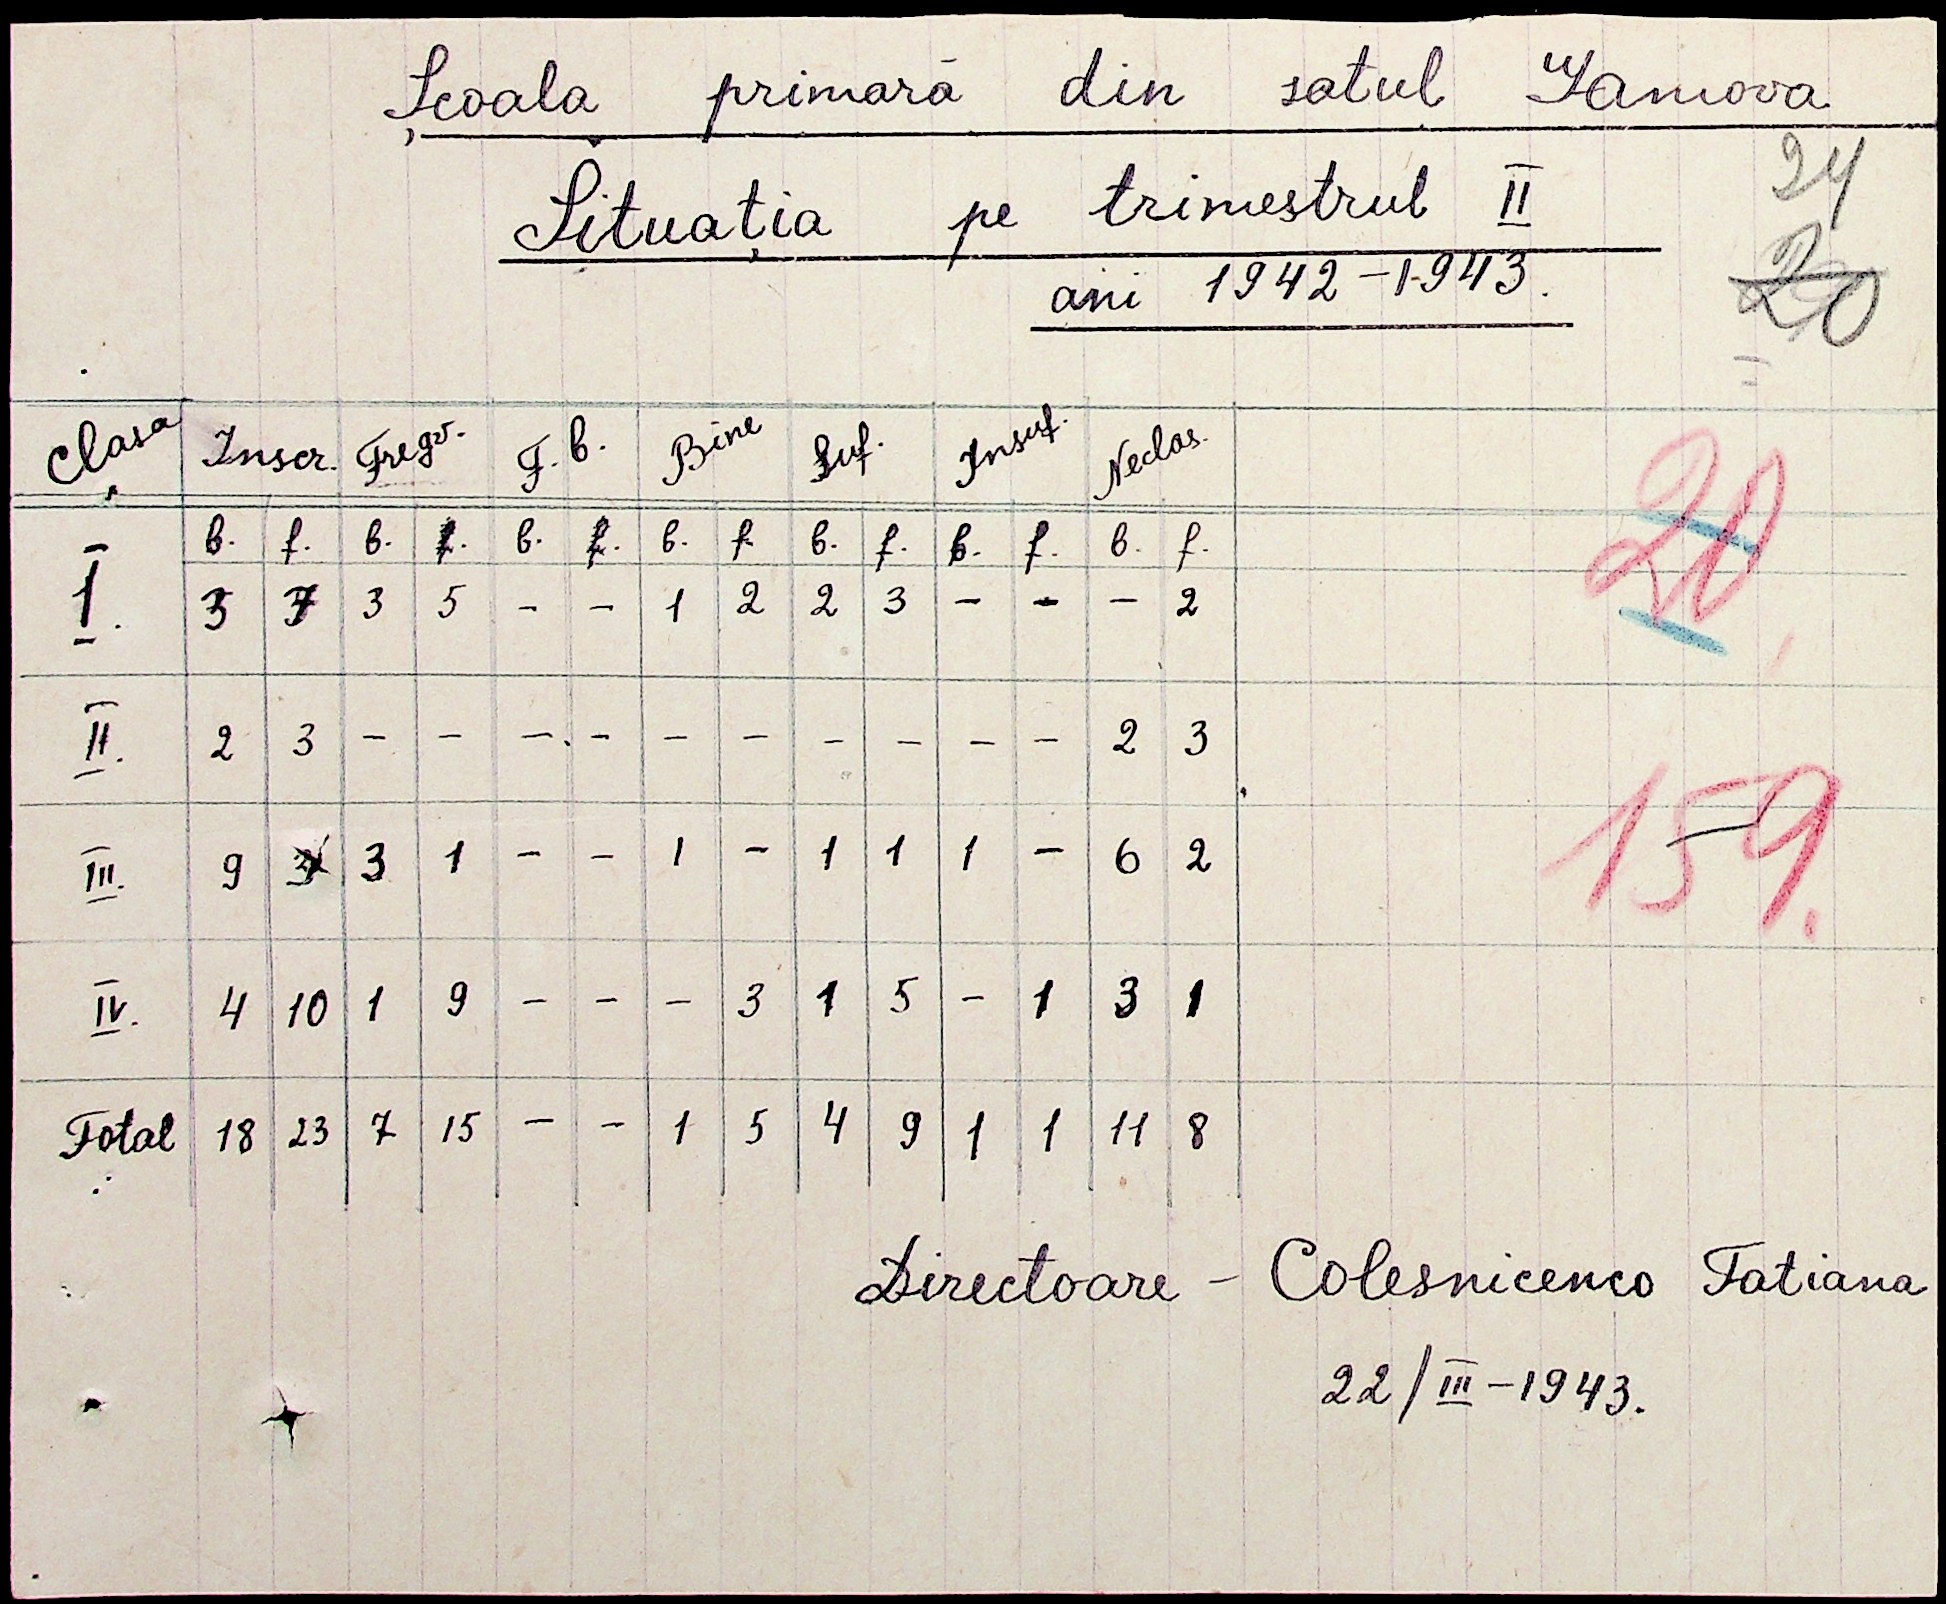 Școala primară din satul Iamova
24
Situația pe trimestrul II
20
ani 1942-1943.
Clasa Inscr. Fregv. F.b. Bine Suf. Insuf. Neclas.
20.
b. f. b. f. b. f. b. f. b. f. b. f. b. f.
I. 3 7 3 5 - - 1 2 2 3 - - - 2
II. 2 3 - - - - - - - - - - 2 3
159.
III. 9 3 3 1 - - 1 - 1 1 1 - 6 2
IV. 4 10 1 9 - - - 3 1 5 - 1 3 1
Total 18 23 7 15 - - 1 5 4 9 1 1 11 8
Directoare - Colesnicenco Tatiana
22/III-1943.